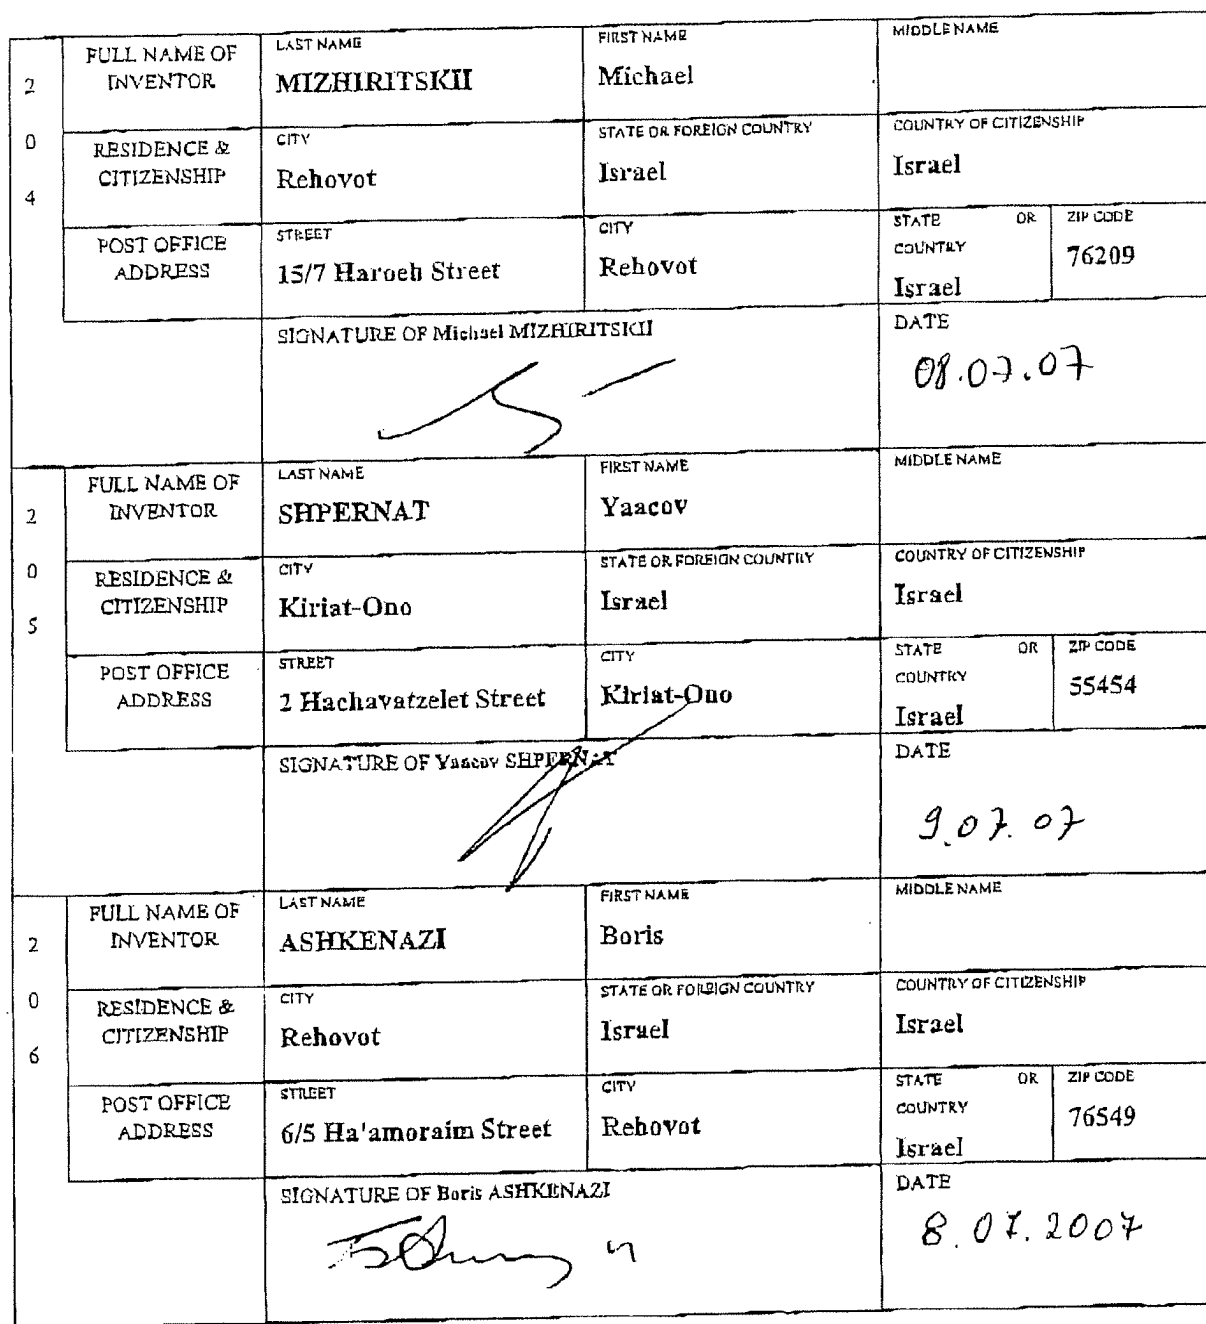 2
0
4
FULL NAME OF
INVENTOR
LAST NAME
MIZHIRITSKII
FIRST NAME
Michael
MIDDLE NAME
RESIDENCE &
CITIZENSHIP
CITY
Rehovot
STATE OR FOREIGN COUNTRY
Israel
COUNTRY OF CITIZENSHIP
Israel
POST OFFICE
ADDRESS
STREET
15/7 Haroeh Street
CITY
Rehovot
STATE OR
COUNTRY
Israel
ZIP CODE
76209
SIGNATURE OF Michael MIZHIRITSKII
DATE
08.07.07
2
0
5
FULL NAME OF
INVENTOR
LAST NAME
SHPERNAT
FIRST NAME
Yaacov
MIDDLE NAME
RESIDENCE &
CITIZENSHIP
CITY
Kiriat-Ono
STATE OR FOREIGN COUNTRY
Israel
COUNTRY OF CITIZENSHIP
Israel
POST OFFICE
ADDRESS
STREET
2 Hachavatzelet Street
CITY
Kiriat-Ono
STATE OR
COUNTRY
Israel
ZIP CODE
55454
SIGNATURE OF Yaacov SHPERNAT
DATE
9.07.07
2
0
6
FULL NAME OF
INVENTOR
LAST NAME
ASHKENAZI
FIRST NAME
Boris
MIDDLE NAME
RESIDENCE &
CITIZENSHIP
CITY
Rehovot
STATE OR FOREIGN COUNTRY
Israel
COUNTRY OF CITIZENSHIP
Israel
POST OFFICE
ADDRESS
STREET
6/5 Ha'amoraim Street
CITY
Rehovot
STATE OR
COUNTRY
Israel
ZIP CODE
76549
SIGNATURE OF Boris ASHKENAZI
DATE
8.07.2007